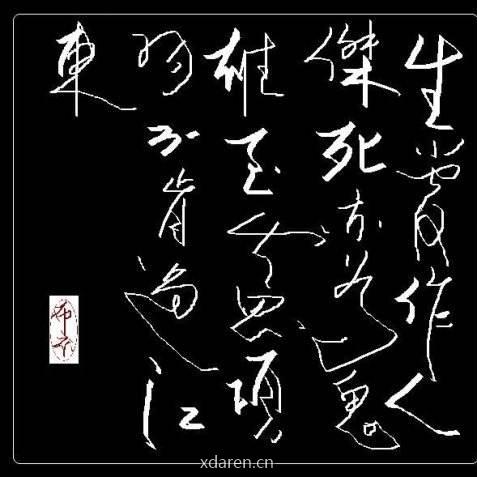 生當作人
傑死亦為鬼
雄至今思項
羽不肯過江
東
布衣
xdaren.cn